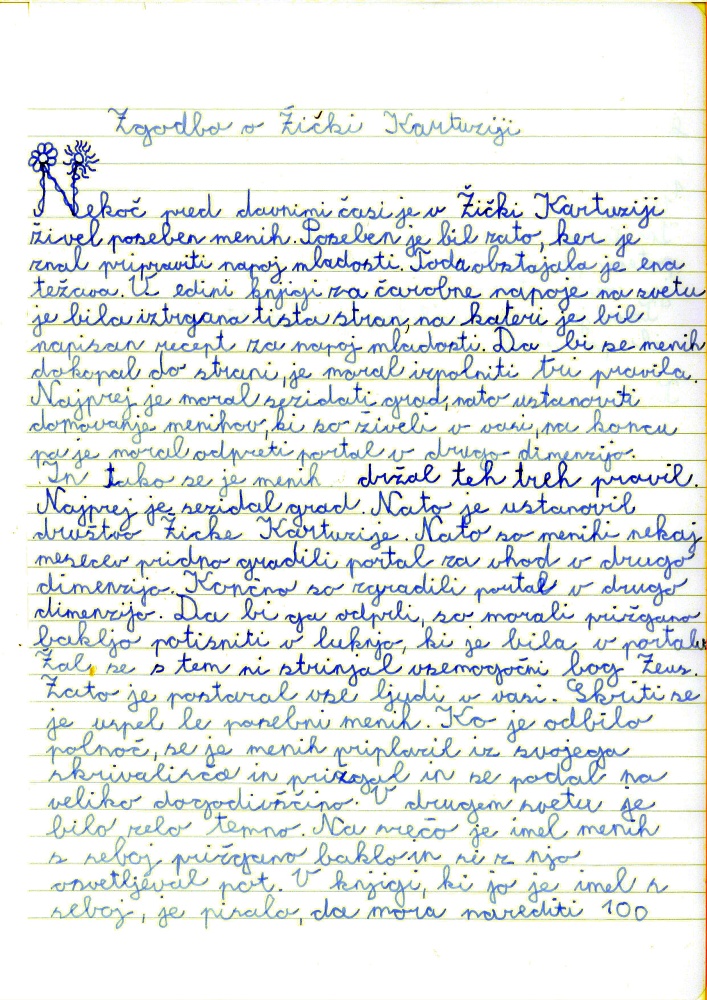 Zgodba o Žički Kartuziji
Nekoč pred davnimi časi je v Žički Kartuziji
živel poseben menih. Poseben je bil zato, ker je
znal pripraviti napoj mladosti. Toda obstajala je ena
težava. V edini knjigi za čarobne napoje na svetu
je bila iztrgana tista stran, na kateri je bil
napisan recept za napoj mladosti. Da bi se menih
dokopal do strani, je moral izpolniti tri pravila.
Najprej je moral sezidati grad, nato ustanoviti
domovanje menihov, ki so živeli v vasi, na koncu
pa je moral odpreti portal v drugo dimenzijo.
In tako se je menih držal teh treh pravil.
Najprej je sezidal grad. Nato je ustanovil
društvo Žičke Kartuzije. Nato so menihi nekaj
mesecev pridno gradili portal za vhod v drugo
dimenzijo. Končno so zgradili portal v drugo
dimenzijo. Da bi ga odprli, so morali prižgano
bakljo potisniti v luknjo, ki je bila v portalu.
Žal, se s tem ni strinjal vsemogočni bog Zeus.
Zato je postaral vse ljudi v vasi. Skriti se
je uspel le posebni menih. Ko je odbilo
polnoč, se je menih priplazil iz svojega
skrivališča in prižgal in se podal na
veliko dogodivščino. V drugem svetu je
bilo zelo temno. Na srečo je imel menih
s seboj prižgano baklo in si z njo
osvetljeval pot. V knjigi, ki jo je imel s
seboj, je pisalo, da mora narediti 100